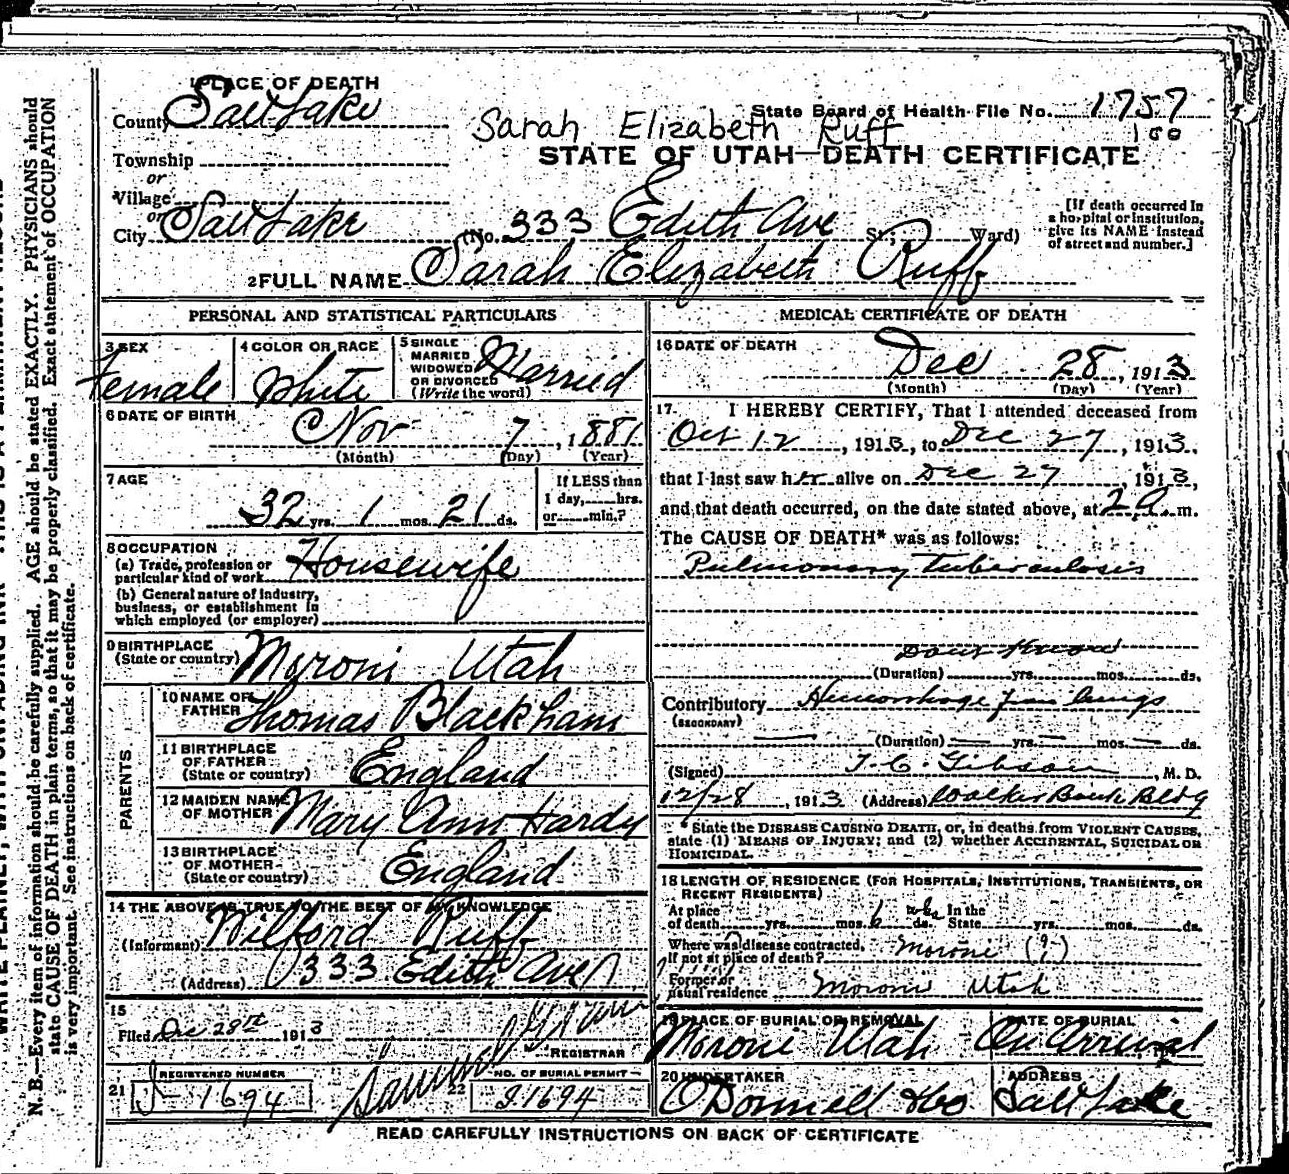 1 PLACE OF DEATH
County Salt Lake
State Board of Health File No. 1757
100
Sarah Elizabeth Ruff
Township
STATE OF UTAH—DEATH CERTIFICATE
or
Village
or
City Salt Lake (No. 333 Edith Ave St.; Ward)
[If death occurred in a hospital or institution, give its NAME instead of street and number.]
2 FULL NAME Sarah Elizabeth Ruff
PERSONAL AND STATISTICAL PARTICULARS
3 SEX Female
4 COLOR OR RACE White
5 SINGLE MARRIED WIDOWED OR DIVORCED (Write the word) Married
6 DATE OF BIRTH Nov 7, 1881
(Month) (Day) (Year)
7 AGE 32 yrs. 1 mos. 21 ds.
If LESS than 1 day, hrs. or min.?
8 OCCUPATION
(a) Trade, profession or particular kind of work Housewife
(b) General nature of industry, business, or establishment in which employed (or employer)
9 BIRTHPLACE (State or country) Moroni Utah
PARENTS
10 NAME OF FATHER Thomas Blackham
11 BIRTHPLACE OF FATHER (State or country) England
12 MAIDEN NAME OF MOTHER Mary Ann Hardy
13 BIRTHPLACE OF MOTHER (State or country) England
14 THE ABOVE IS TRUE TO THE BEST OF MY KNOWLEDGE
(Informant) Wilford Ruff
(Address) 333 Edith Ave
15
Filed Dec 28th 1913
REGISTRAR
21 REGISTERED NUMBER
J-1694
22 NO. OF BURIAL PERMIT
J.1694
MEDICAL CERTIFICATE OF DEATH
16 DATE OF DEATH
Dec 28, 1913
(Month) (Day) (Year)
17. I HEREBY CERTIFY, That I attended deceased from
Oct 12, 1913, to Dec 27, 1913,
that I last saw her alive on Dec 27, 1913,
and that death occurred, on the date stated above, at 2 a. m.
The CAUSE OF DEATH* was as follows:
Pulmonary Tuberculosis
Dont Know
(Duration) yrs. mos. ds.
Contributory Hemorrhage from lungs
(SECONDARY)
(Duration) yrs. mos. ds.
(Signed) T. C. Gibson, M. D.
12/28, 1913 (Address) Walker Bank Bldg
* State the DISEASE CAUSING DEATH, or, in deaths from VIOLENT CAUSES, state (1) MEANS OF INJURY; and (2) whether ACCIDENTAL, SUICIDAL OR HOMICIDAL.
18 LENGTH OF RESIDENCE (FOR HOSPITALS, INSTITUTIONS, TRANSIENTS, OR RECENT RESIDENTS)
At place of death yrs. mos. 6 wks ds. In the State yrs. mos. ds.
Where was disease contracted, If not at place of death? Moroni (?)
Former or usual residence Moroni Utah
19 PLACE OF BURIAL OR REMOVAL Moroni Utah
DATE OF BURIAL On Arrival
20 UNDERTAKER O'Donnell & Co
ADDRESS Salt Lake
READ CAREFULLY INSTRUCTIONS ON BACK OF CERTIFICATE
N. B.—Every item of information should be carefully supplied. AGE should be stated EXACTLY. PHYSICIANS should
state CAUSE OF DEATH in plain terms, so that it may be properly classified. Exact statement of OCCUPATION
is very important. See instructions on back of certificate.